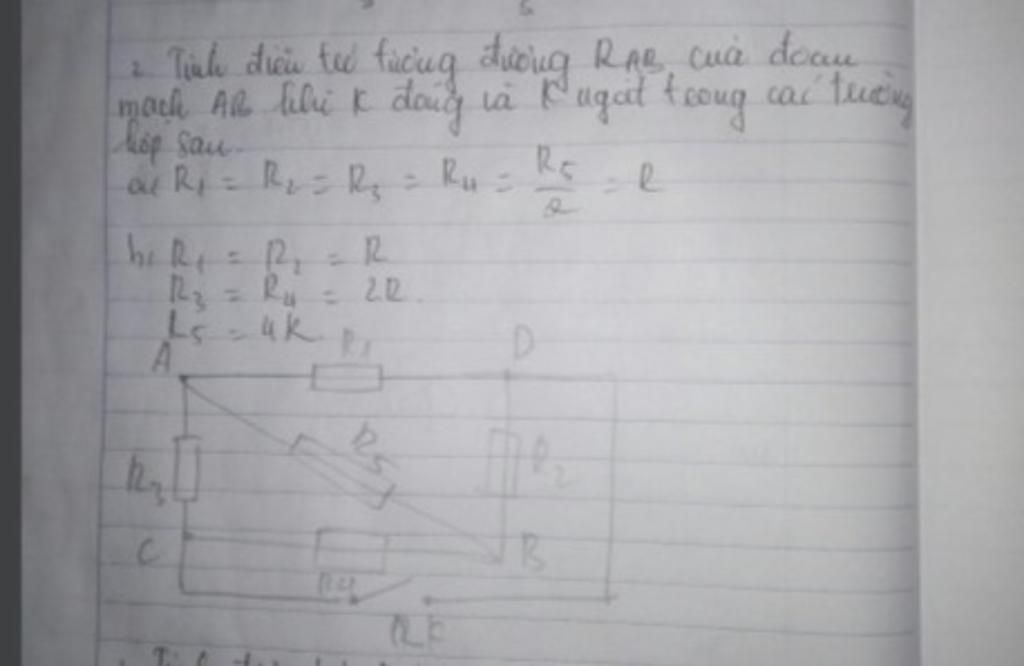 2. Tính điện trở tương đương RAB của đoạn
mạch AB khi K đóng và K ngắt trong các trường
hợp sau.
a, R1 = R2 = R3 = R4 = R5/2 = R
b, R1 = R2 = R
R3 = R4 = 2R.
R5 = 4R
A R1 D
R3 R5 R2
C R4 B
K